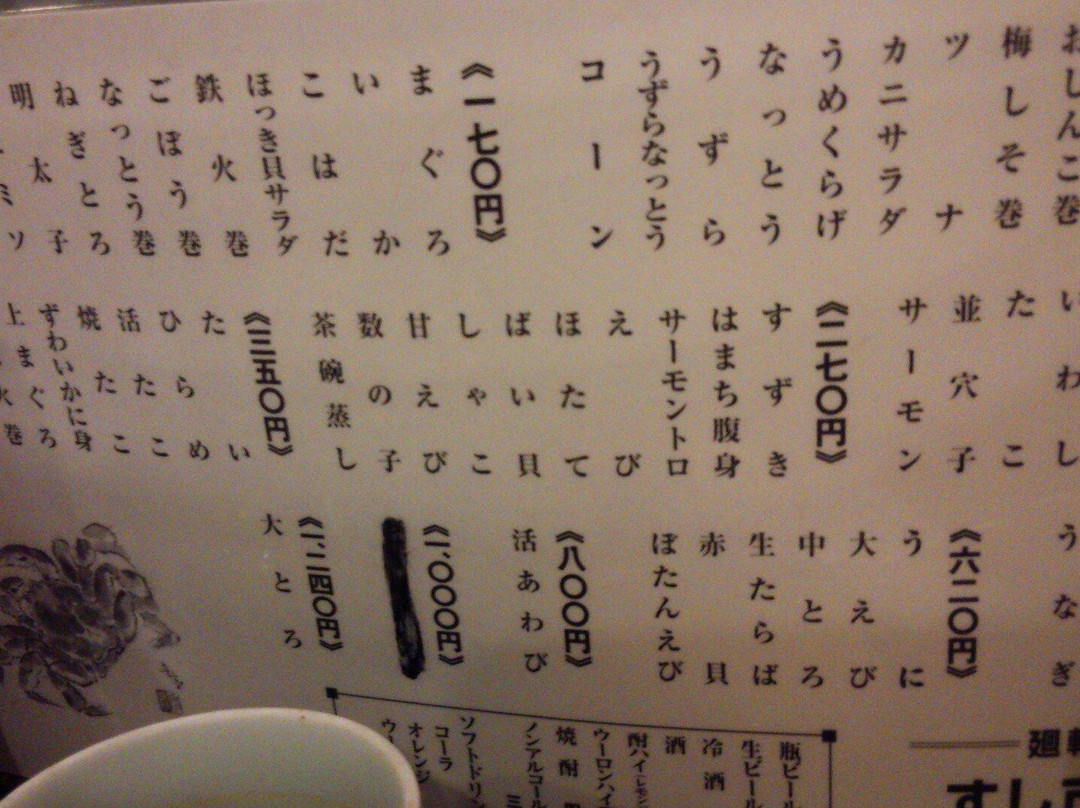 おしんこ巻
梅しそ巻
ツナ
カニサラダ
うめくらげ
なっとう
うずら
うずらなっとう
コーン
《一七〇円》
まぐろ
いか
こはだ
ほっき貝サラダ
鉄火巻
ごぼう巻
なっとう巻
ねぎとろ
明太子
いわし
たこ
並穴子
サーモン
《二七〇円》
すずき
はまち腹身
サーモントロ
えび
ほたて
ばい貝
しゃこ
甘えび
数の子
茶碗蒸し
《三五〇円》
たい
ひらめ
活たこ
焼たこ
ずわいかに身
上まぐろ
うなぎ
《六二〇円》
うに
大えび
中とろ
生たらば
赤貝
ぼたんえび
《八〇〇円》
活あわび
《一、〇〇〇円》
《一、二四〇円》
大とろ
瓶ビール
生ビール
冷酒
酒
酎ハイ(レモン
ウーロンハイ
焼酎
ノンアルコール
ソフトドリン
コーラ
オレンジ
廻転
すし